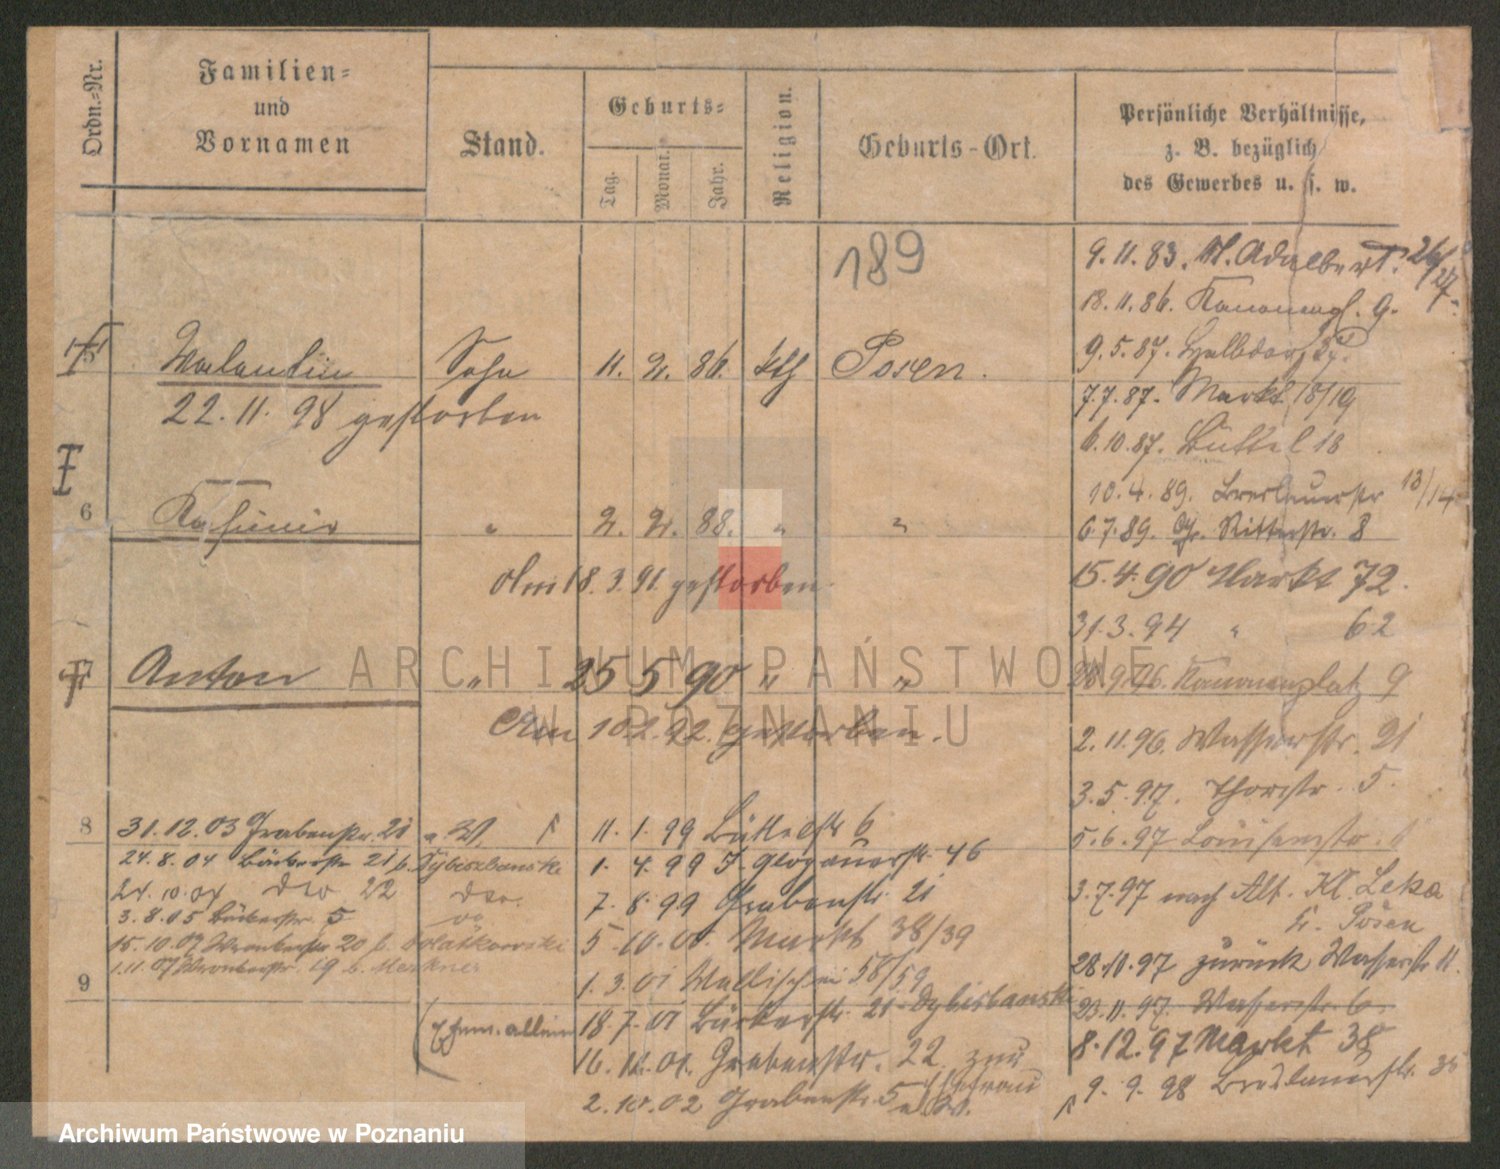 Ordn.-Nr.
Familien-
und
Vornamen
Stand.
Geburts-
Tag.
Monat.
Jahr.
Religion.
Geburts-Ort.
Persönliche Verhältnisse,
z. B. bezüglich
des Gewerbes u. s. w.
189
9.11.83. St. Adalbert. 26/27.
18.11.86. Kanonenpl. 9.
Valentin Sohn 11. 2. 86. kth Posen.
9.5.87.
22.11.98 gestorben
7.7.87. Markt 18/19
6.10.87. Büttel 18
10.4.89. Breslauerstr 13/14
6 Kasimir " 2. 2. 88. " "
6.7.89. Gr. Ritterstr. 8
Am 18.3.91. gestorben.
15.4.90 Markt 72.
31.3.94 " 62
Anton " 25 5 90 " "
28.9.96. Kanonenplatz 9
Am 10.2.92. gestorben.
2.11.96. Wasserstr. 21
3.5.97. Thorstr. 5.
8
31.12.03 Grabenstr. 21
11.1.99 Büttelstr 6
5.6.97 Louisenstr.
24.8.04 Bäckerstr 21 b. Dybizbanski
1.4.99 Glogauerstr. 46
24.10.04 dto 22 dto.
7.8.99 Grabenstr. 21
3.7.97 nach Alt. Kl. Leka
Kr. Posen
3.8.05 Bäckerstr. 5
15.10.07 Wronkerstr 20 b.
5.10.00. Markt 38/39
1.11.07 Wronkerstr. 19 b. Merkner
28.10.97 zurück Wasserstr 11.
9
1.3.01 Wallischei 58/59
23.11.97. Wasserstr. 6.
(Ehem. allein
18.7.01 Bäckerstr. 21 Dybisbanski
8.12.97 Markt 38
16.11.01. Grabenstr. 22 zur
Ehefrau
9.9.98 Breslauerstr. 35
2.10.02 Grabenstr. 5
ARCHIWUM PAŃSTWOWE
W POZNANIU
Archiwum Państwowe w Poznaniu